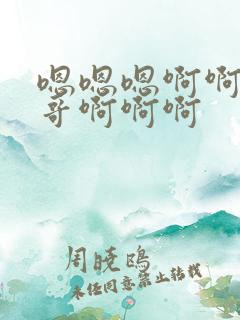 嗯嗯嗯啊啊
哥啊啊啊
周晓鸥
未经同意禁止转载